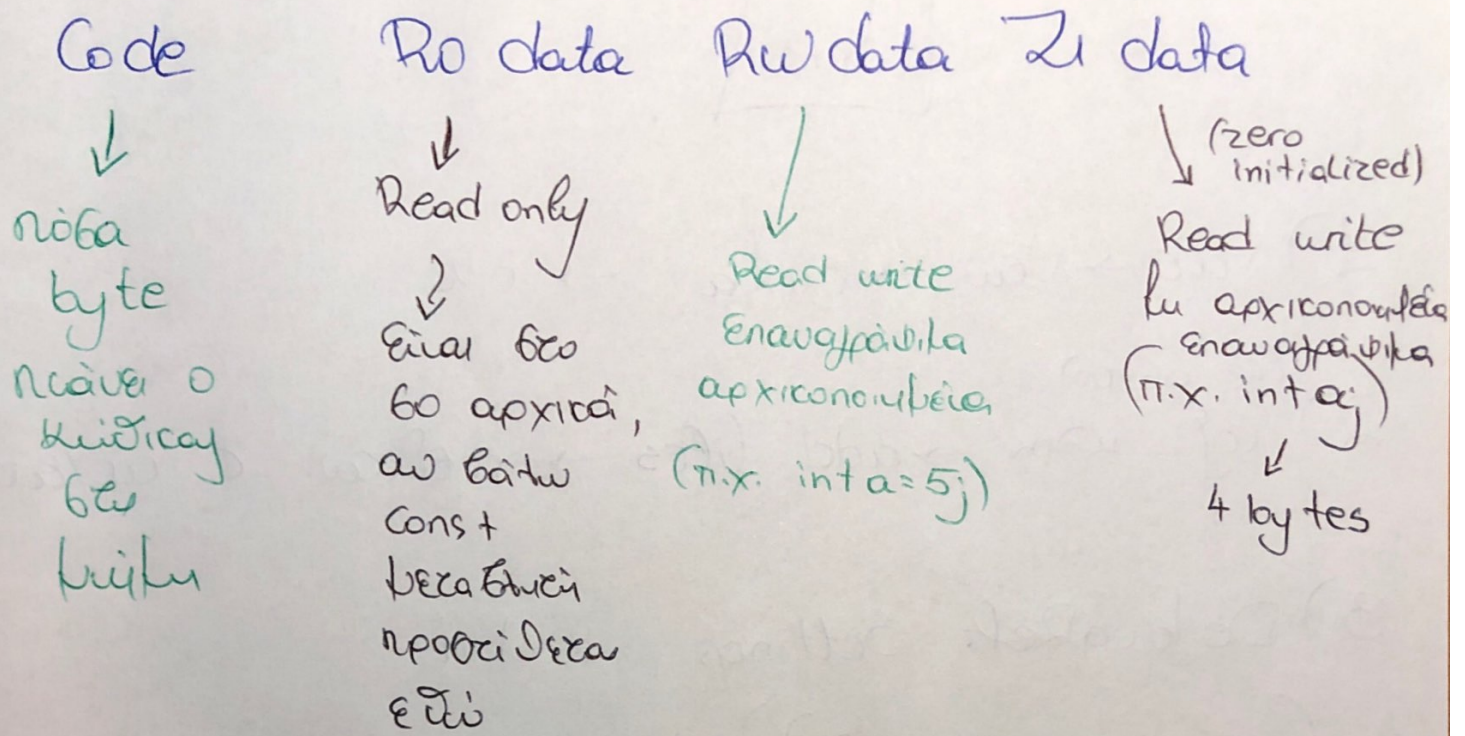 Code
RO data
RW data
ZI data
πόσα
byte
πιάνει ο
κώδικας
στη
μνήμη
Read only
είναι στο
60 αρχικά,
αν βάλω
const
μεταβλητή
προστίθεται
εδώ
Read write
επανεγράψιμα
αρχικοποιημένα
(π.χ. int a=5;)
(zero
initialized)
Read write
μη αρχικοποιημένα
επανεγράψιμα
(π.χ. int a;)
4 bytes